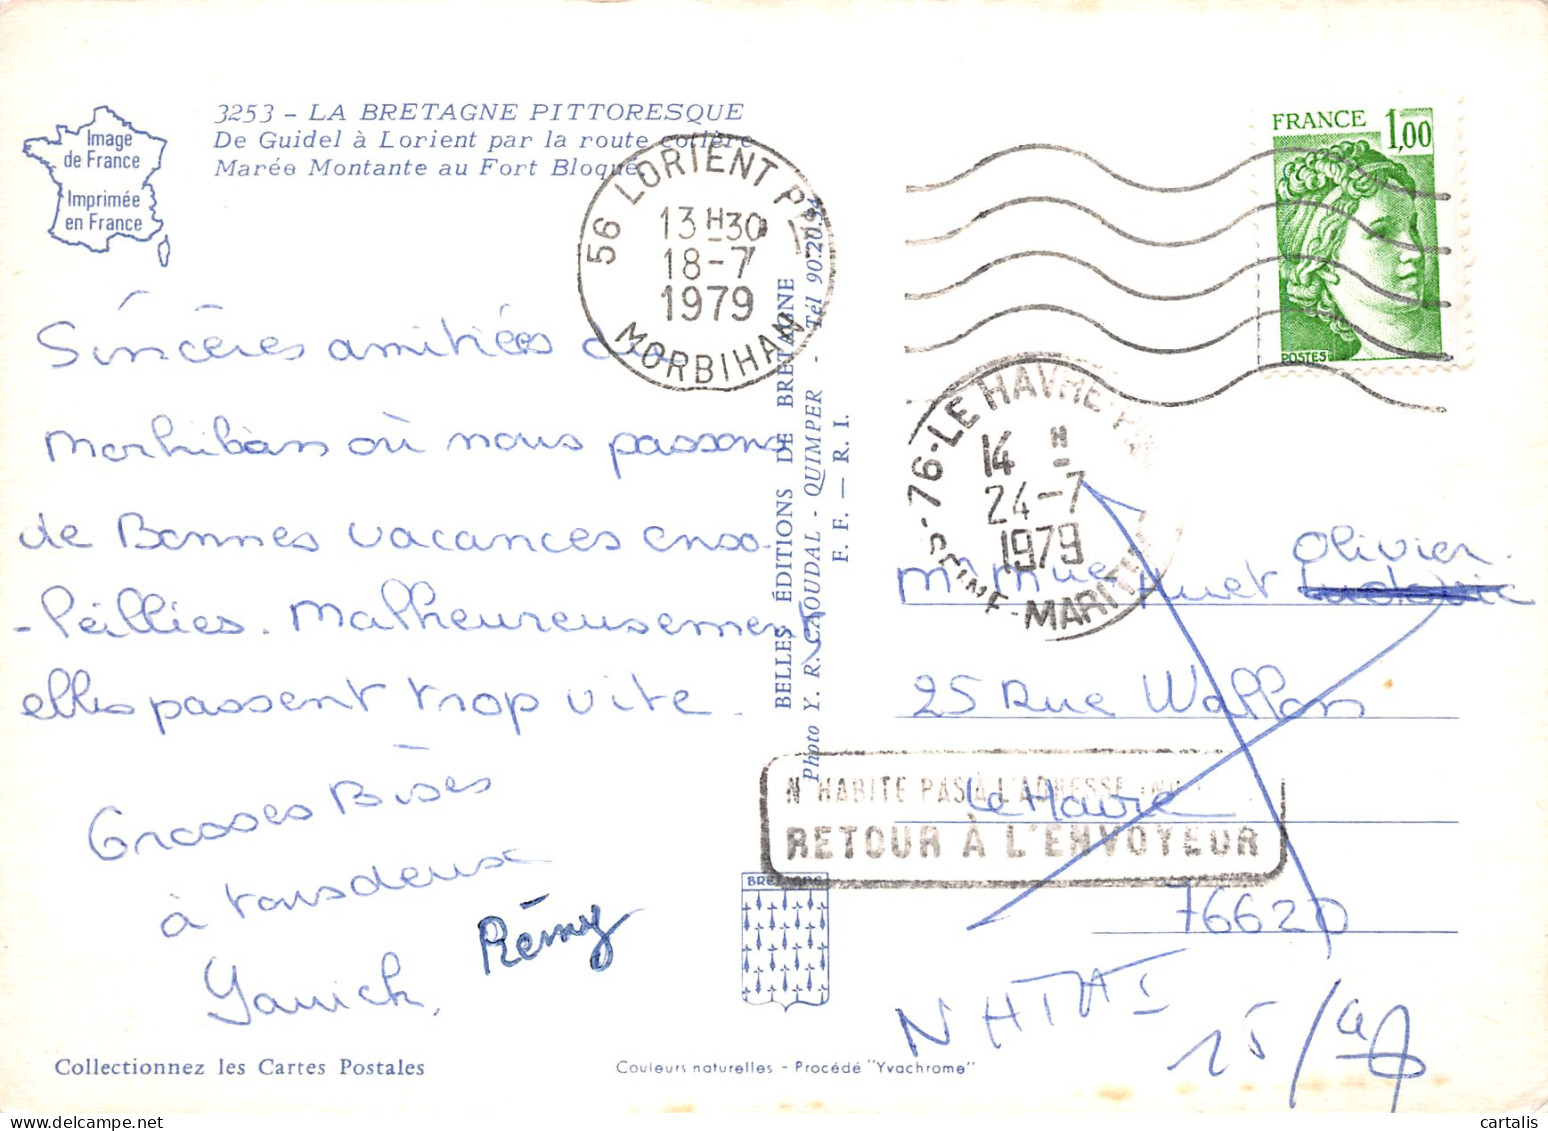 3253 - LA BRETAGNE PITTORESQUE
De Guidel à Lorient par la route cotière
Marée Montante au Fort Bloqué
Image
de France
Imprimée
en France
56 LORIENT
13 H 30
18-7
1979
MORBIHAN
FRANCE 1,00
POSTES
Sincères amitiées du
Morbihan où nous passons
de Bonnes vacances enso-
-leillies. Malheureusement
elles passent trop vite.
Grosses Bises
à tous deux
Yanick, Rémy
BELLES ÉDITIONS DE BRETAGNE
Photo Y. R. CAOUDAL - QUIMPER - Tél 90.20.94
F. F. — R. I.
76-LE HAVRE
14 H
24-7
1979
SEINE-MARITIME
Olivier
Mr Mme Huet Ludovic
25 Rue Wallon
Le Havre
76620
N'HABITE PAS À L'ADRESSE
RETOUR À L'ENVOYEUR
BRETAGNE
15/
Collectionnez les Cartes Postales
Couleurs naturelles - Procédé "Yvachrome"
cartalis